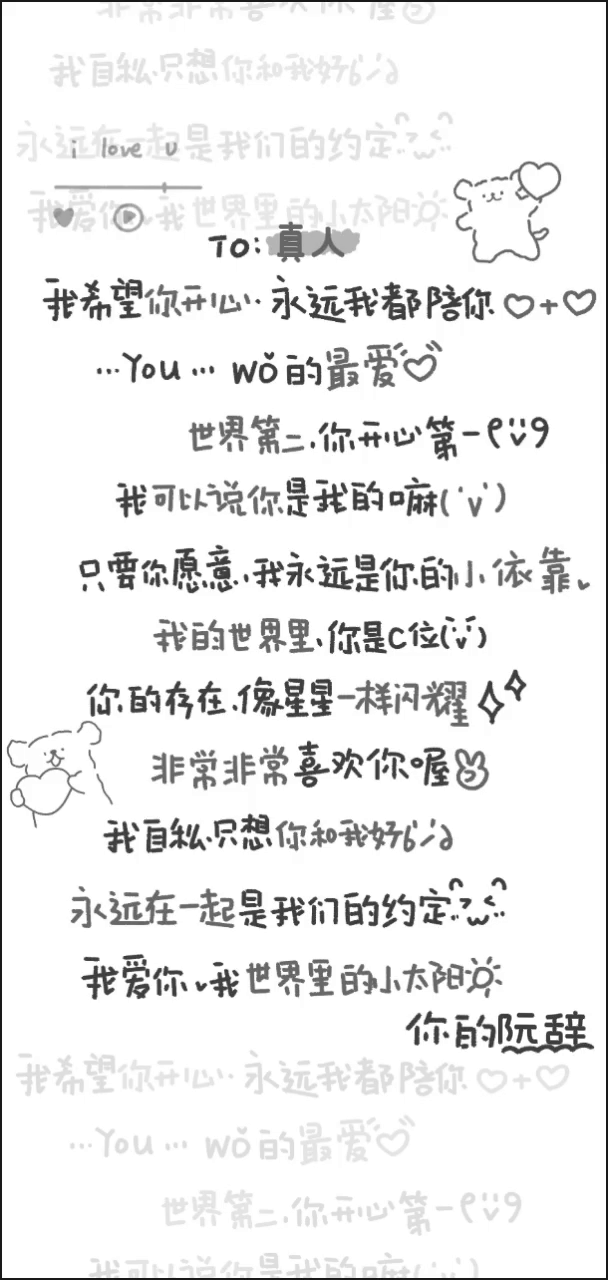 非常非常喜欢你喔
我自私只想你和我好
永远在一起是我们的约定
i love u
我爱你、我世界里的小太阳
TO: 真人
我希望你开心·永远我都陪你♡+♡
…You … wǒ的最爱♡
世界第二、你开心第一
我可以说你是我的嘛(ˊvˋ)
只要你愿意、我永远是你的小依靠、
我的世界里、你是C位
你的存在、像星星一样闪耀
非常非常喜欢你喔
我自私、只想你和我好
永远在一起是我们的约定
我爱你、我世界里的小太阳
你的阮辞
我希望你开心·永远我都陪你♡+♡
…You … wǒ的最爱♡
世界第二、你开心第一
我可以说你是我的嘛(ˊvˋ)